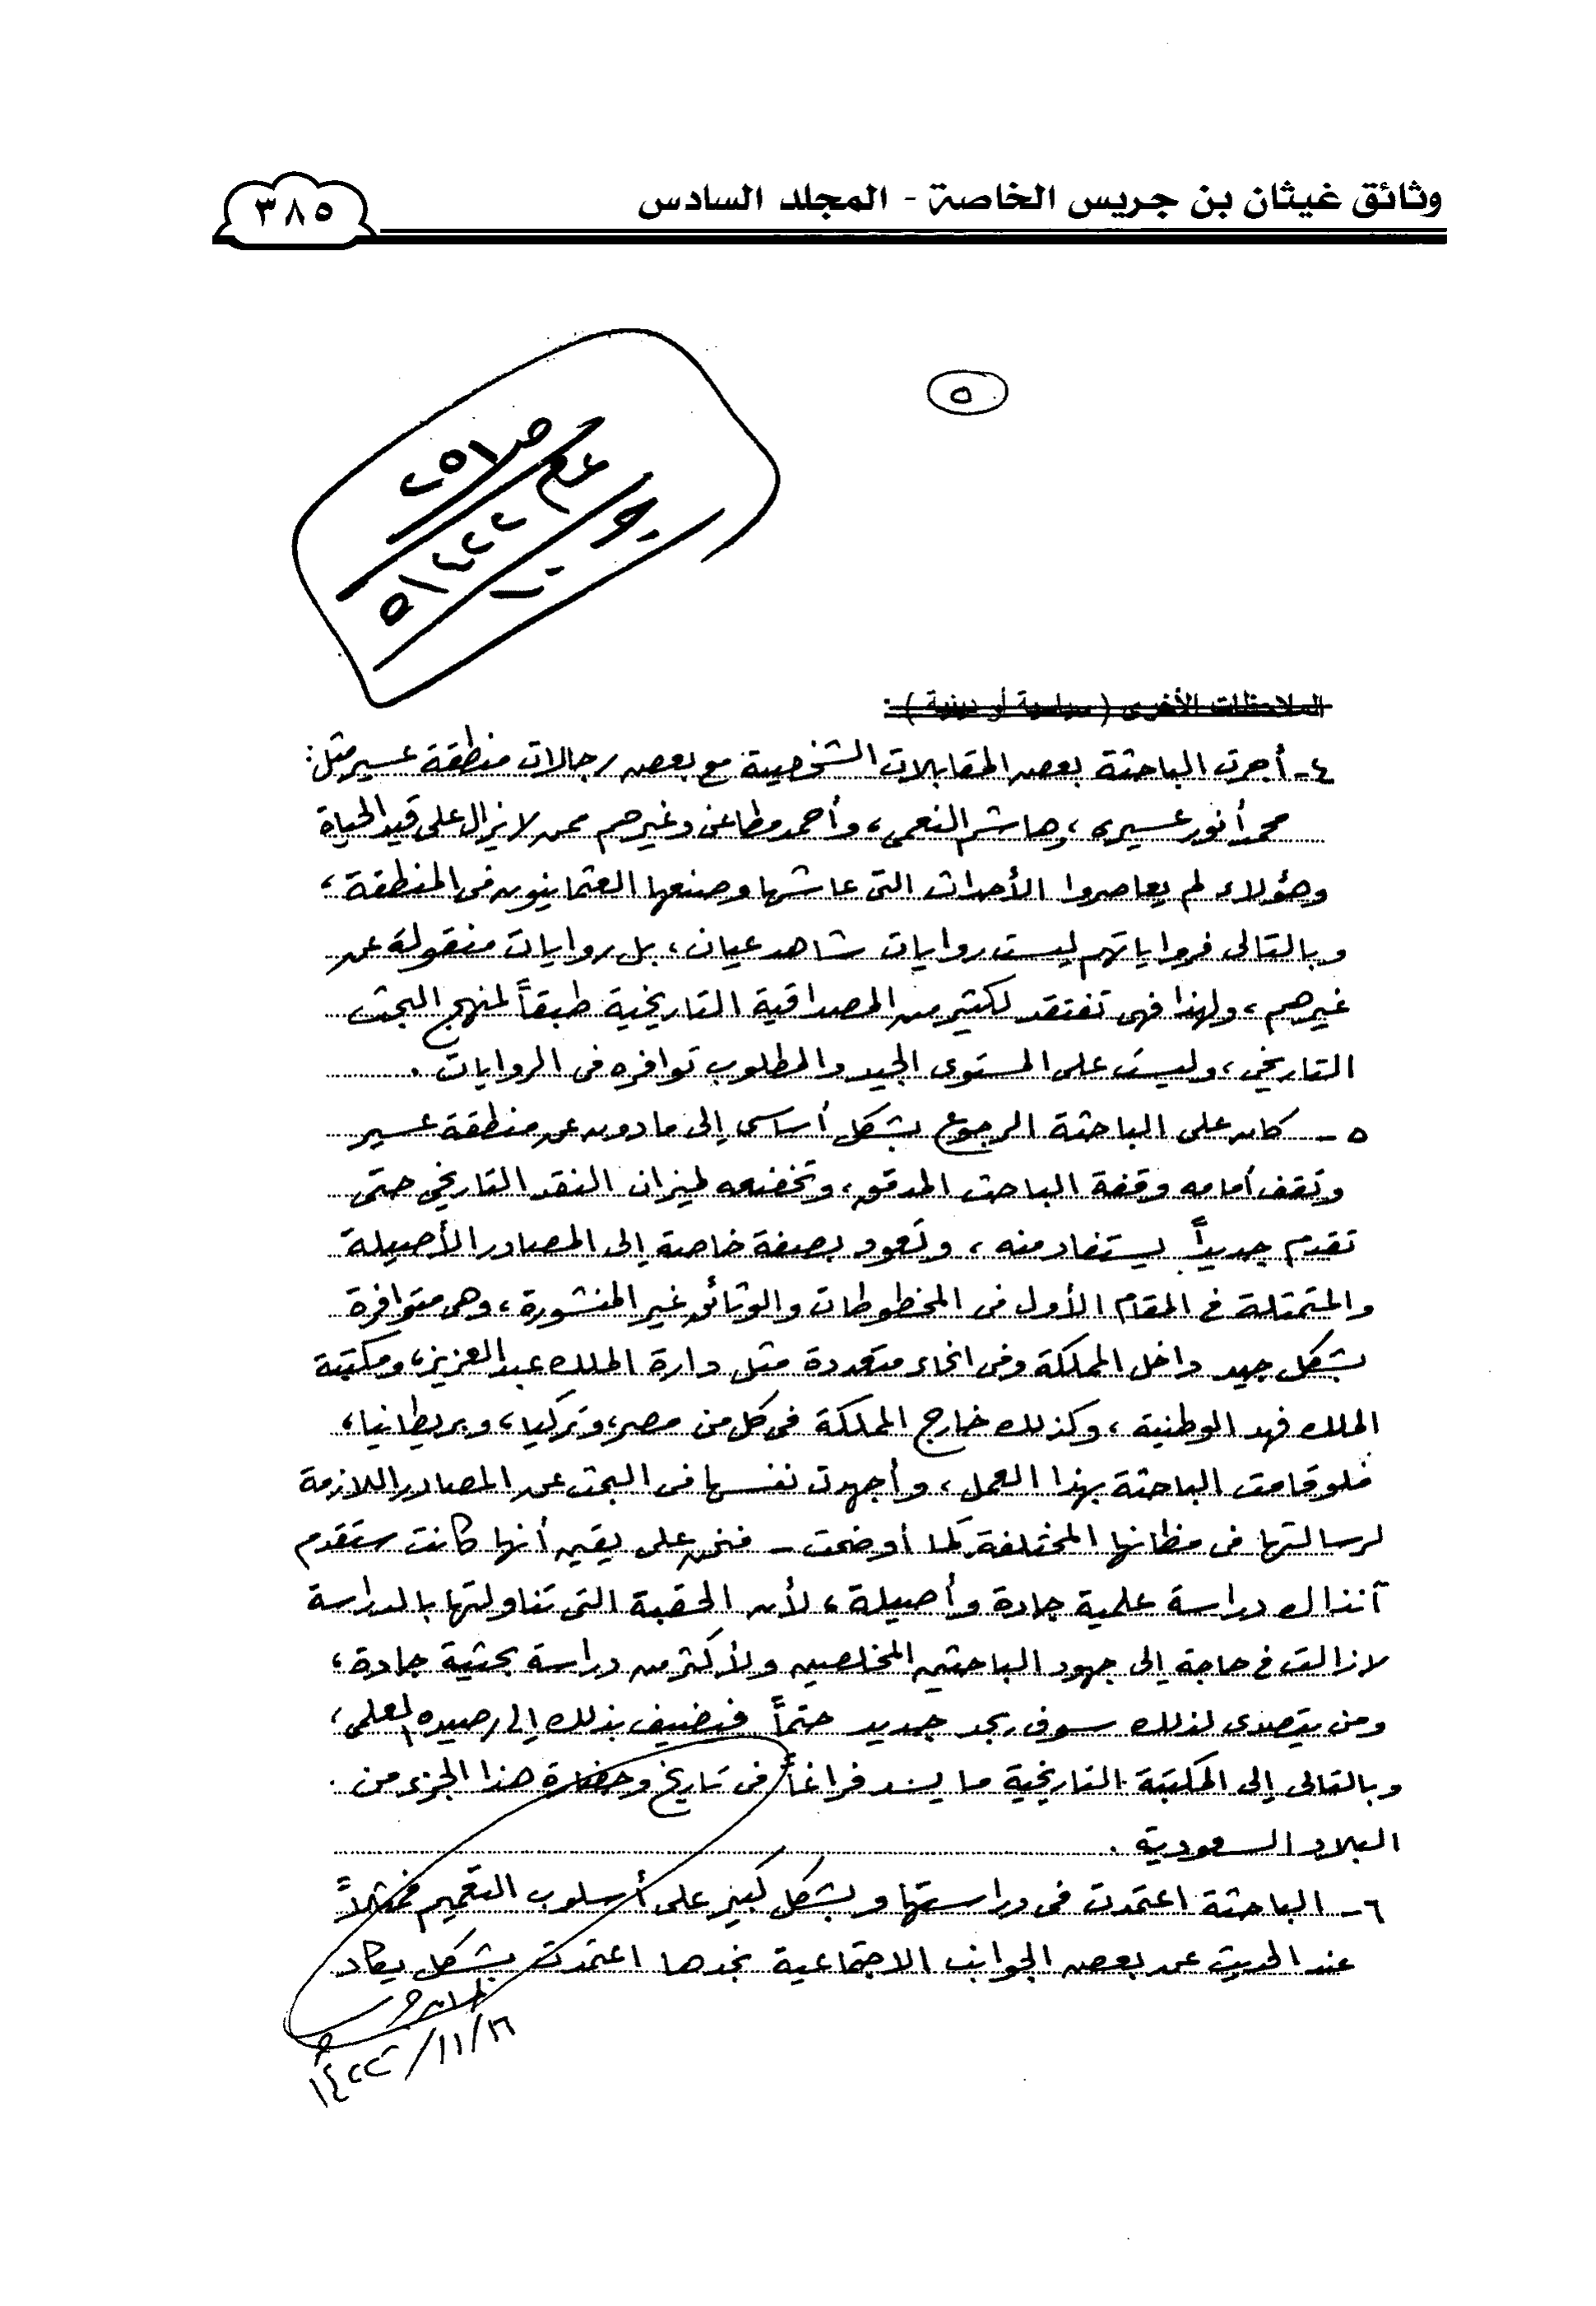 وثائق غيثان بن جريس الخاصة - المجلد السادس
٣٨٥
٥
الملاحظات الأخرى (سياسية أو دينية) :
٤- أجرت الباحثة بعض المقابلات الشخصية مع بعض رجالات منطقة عسير مثل:
محمد أنور عسيري، وهاشم النعمى، وأحمد مطاعن وغيرهم ممن لا يزال على قيد الحياة
وهؤلاء لم يعاصروا الأحداث التى عاشها وصنعها العثمانيون فى المنطقة،
وبالتالى فرواياتهم ليست روايات شاهد عيان، بل روايات منقولة عن
غيرهم، ولهذا فهى تفتقد لكثير من المصداقية التاريخية طبقاً لمنهج البحث
التاريخى، وليست على المستوى الجيد والمطلوب توافره فى الروايات.
٥- كان على الباحثة الرجوع بشكل أساسى إلى ما دون عن منطقة عسير
وتقف أمامه وقفة الباحث المدقق، وتخضعه لميزان النقد التاريخى حتى
تقدم جديداً يستفاد منه، وتعود بصفة خاصة إلى المصادر الأصيلة
والمتمثلة في المقام الأول فى المخطوطات والوثائق غير المنشورة، وهى متوافرة
بشكل جيد داخل المملكة وفى انحاء متعددة مثل دارة الملك عبد العزيز، ومكتبة
الملك فهد الوطنية، وكذلك خارج المملكة فى كل من مصر، وتركيا، وبريطانيا،
فلو قامت الباحثة بهذا العمل، وأجهدت نفسها فى البحث عن المصادر اللازمة
لرسالتها فى مظانها المختلفة كما أوضحت - فنحن على يقين أنها كانت ستقدم
آنذاك دراسة علمية جادة وأصيلة، لأن الحقبة التى تناولتها بالدراسة
لازالت في حاجة إلى جهود الباحثين المخلصين ولأكثر من دراسة بحثية جادة،
ومن يتصدى لذلك سوف يجد جديد حتماً فيضيف بذلك إلى رصيده العلمى،
وبالتالى إلى المكتبة التاريخية ما يسد فراغاً فى تاريخ وحضارة هذا الجزء من
البلاد السعودية.
٦- الباحثة اعتمدت فى دراستها وبشكل كبير على أسلوب التعميم فمثلاً
عند الحديث عن بعض الجوانب الاجتماعية نجدها اعتمدت بشكل يكاد